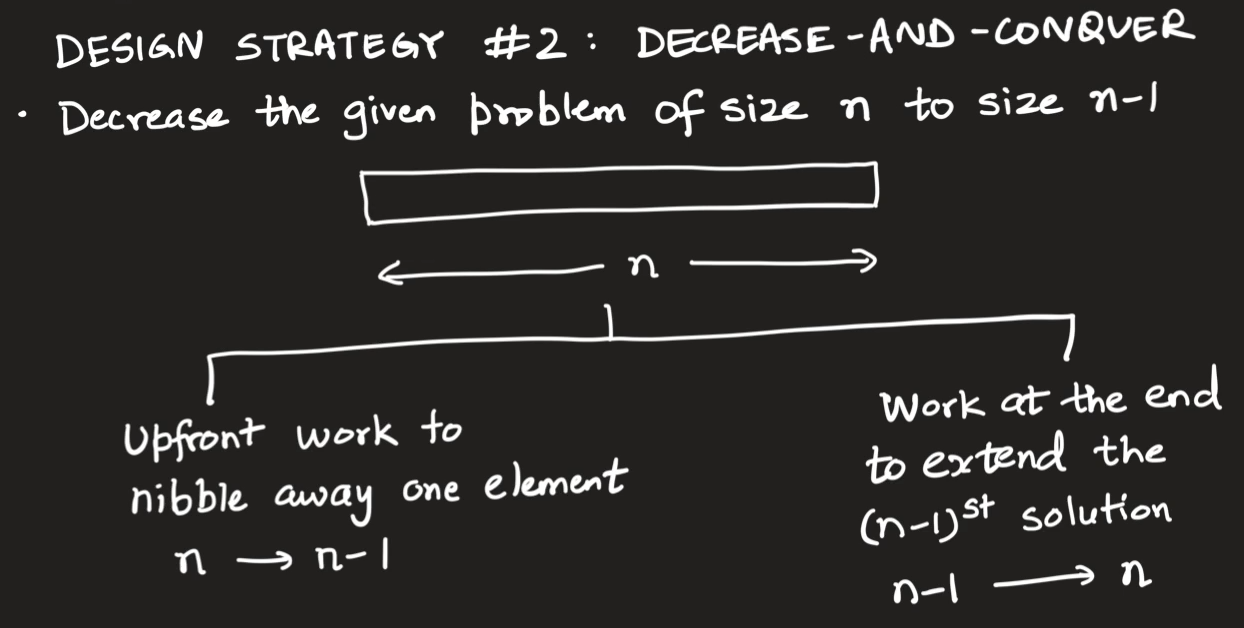 DESIGN STRATEGY #2: DECREASE-AND-CONQUER
• Decrease the given problem of size n to size n-1
n
Upfront work to
nibble away one element
n → n-1
Work at the end
to extend the
(n-1)st solution
n-1 → n